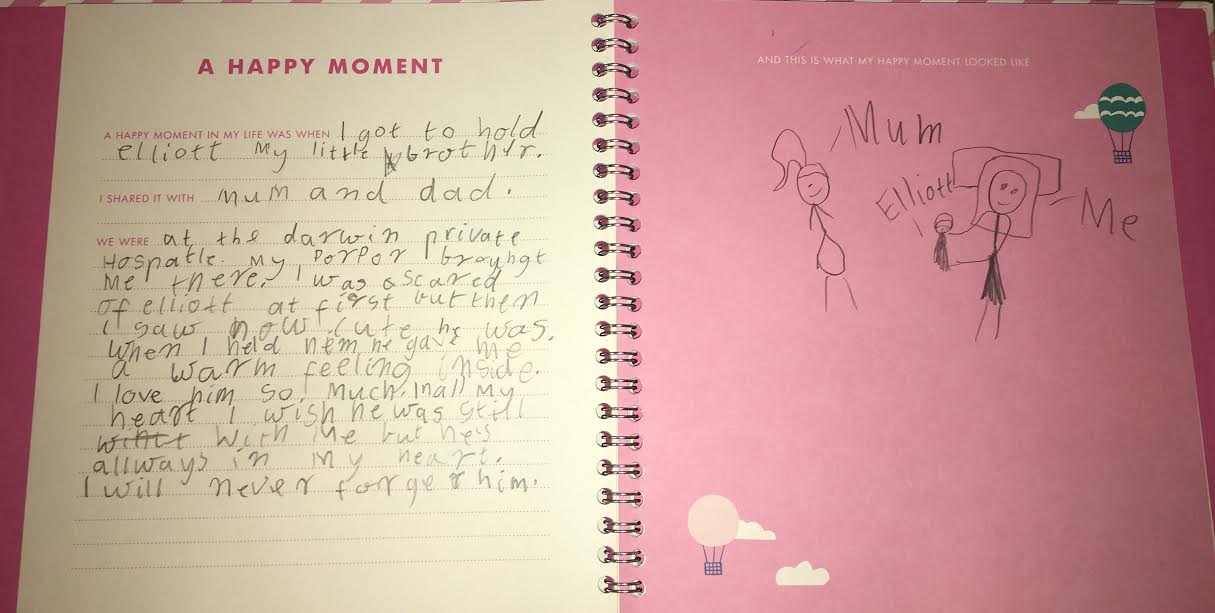 A HAPPY MOMENT
A HAPPY MOMENT IN MY LIFE WAS WHEN I got to hold
elliott My little brother.
I SHARED IT WITH mum and dad.
WE WERE at the darwin private
Hospatle. My PorPor brouhgt
Me there. I was a scared
of elliott at first but then
I saw how cute he was.
when I held hem he gave me
a warm feeling inside.
I love him so Much. In all My
heart I wish he was still
with Me but he's
allways in My heart.
I will never forget him.
AND THIS IS WHAT MY HAPPY MOMENT LOOKED LIKE
Mum
Elliott
Me